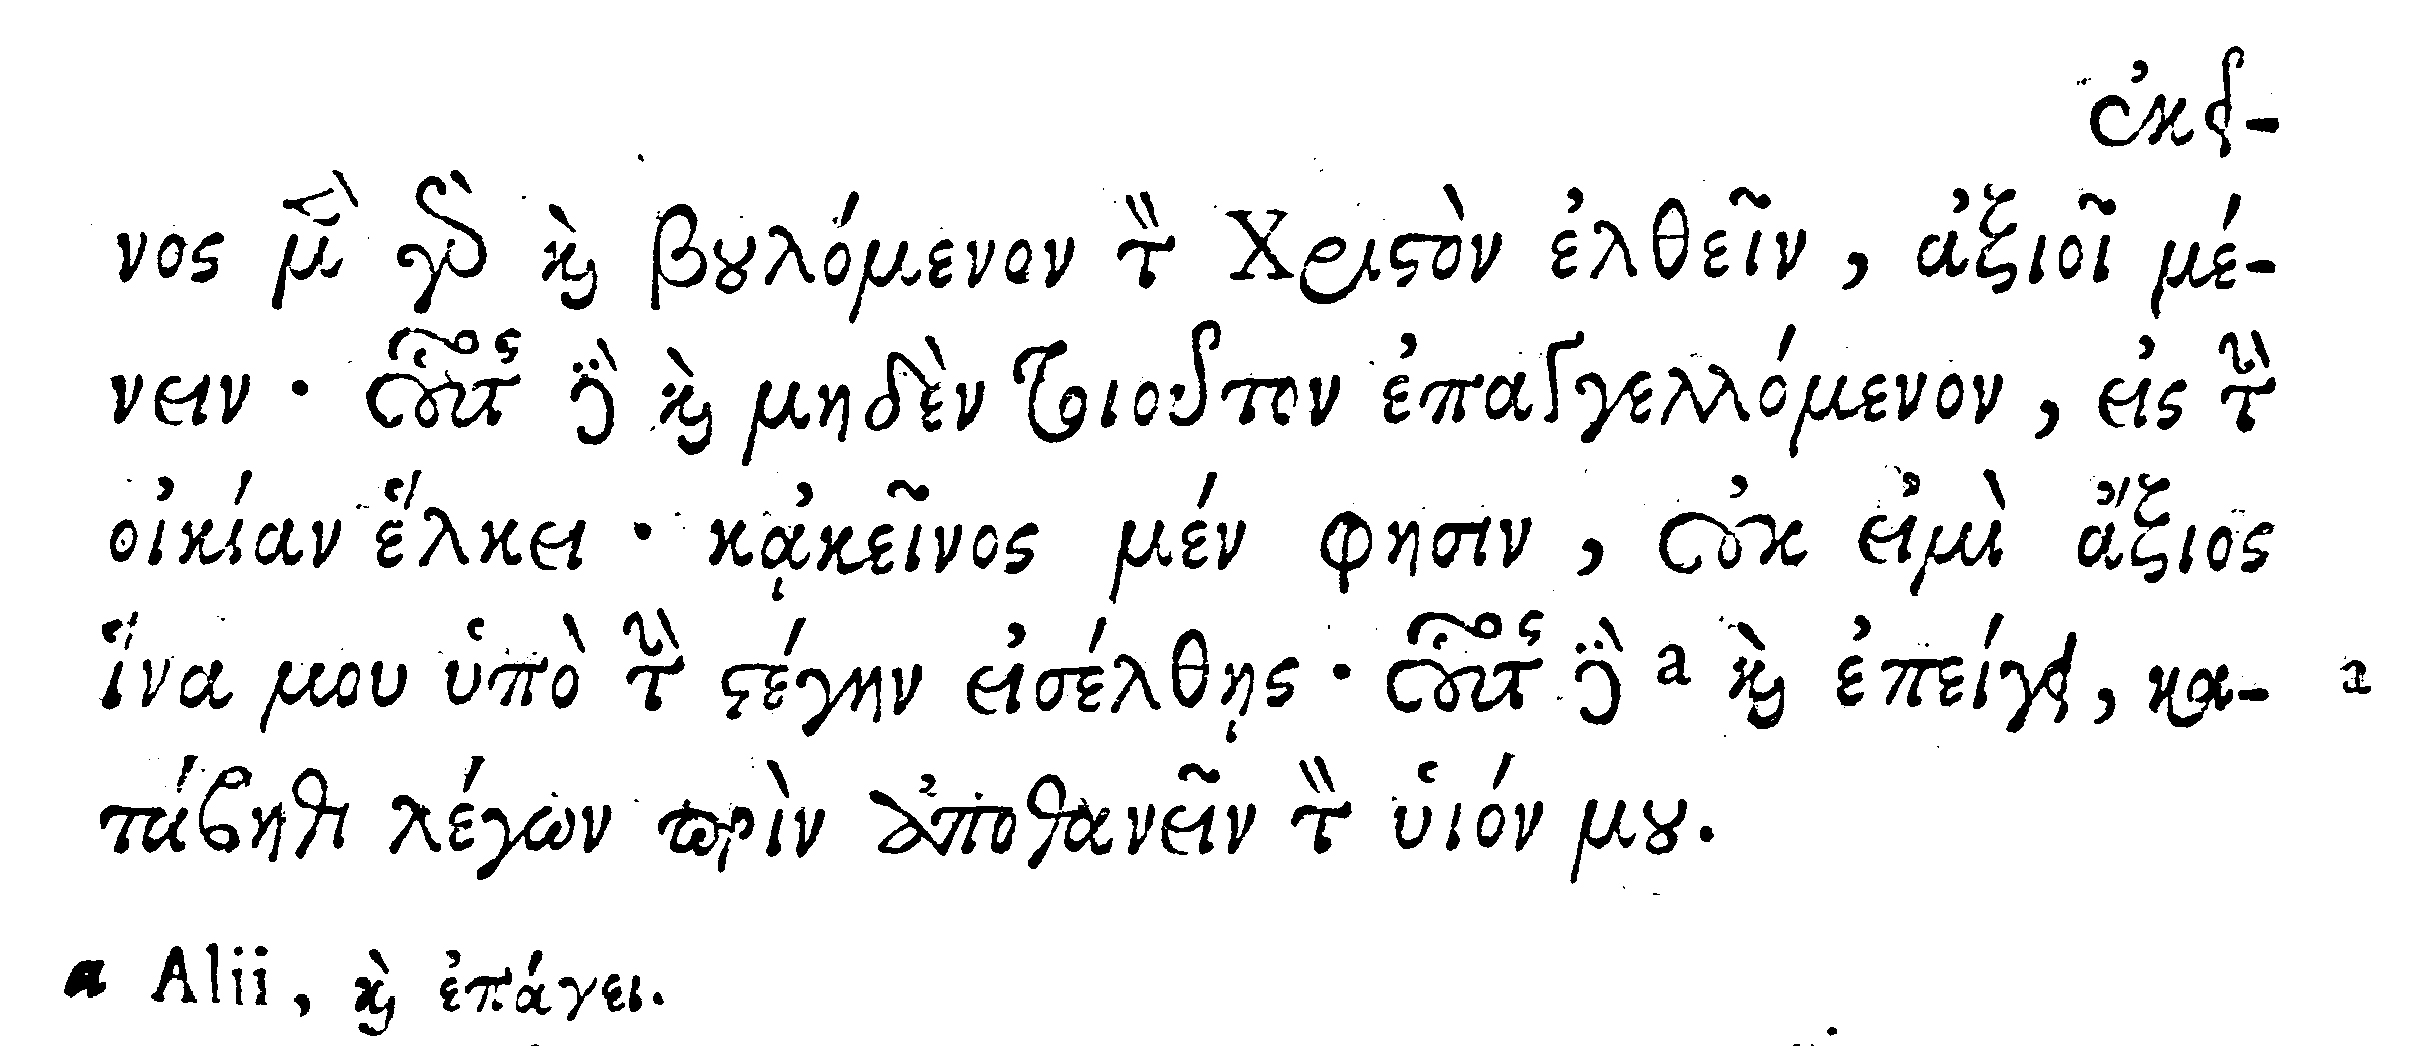 ἐκεῖ-
νος μὲν γὰρ καὶ βουλόμενον τὸν Χριστὸν ἐλθεῖν, ἀξιοῖ μέ-
νειν· οὗτος δὲ καὶ μηδὲν τοιοῦτον ἐπαγγελλόμενον, εἰς τὴν
οἰκίαν ἕλκει· κᾀκεῖνος μέν φησιν, οὐκ εἰμὶ ἄξιος
ἵνα μου ὑπὸ τὴν στέγην εἰσέλθῃς· οὗτος δὲ a καὶ ἐπείγει, κα- a
τάβηθι λέγων πρὶν ἀποθανεῖν τὸν ὑιόν μου.
a Alii, καὶ ἐπάγει.